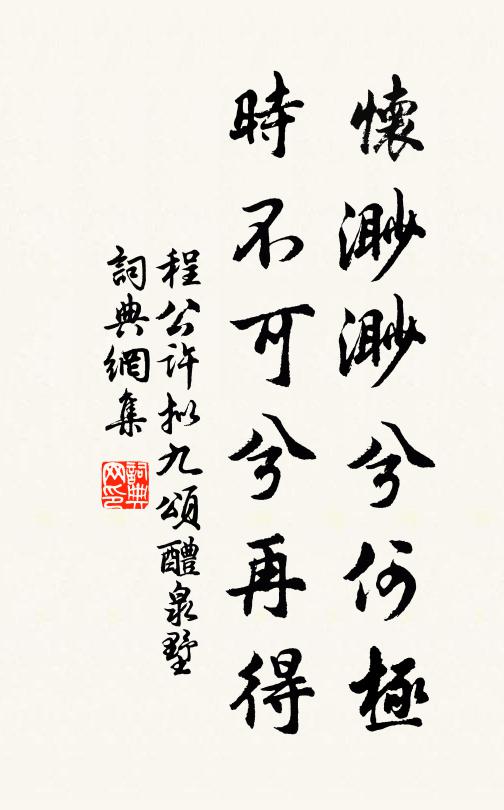 懷渺渺兮何極
時不可兮再得
程公許拟九頌醴泉墅
詞典網集
詞典
网印